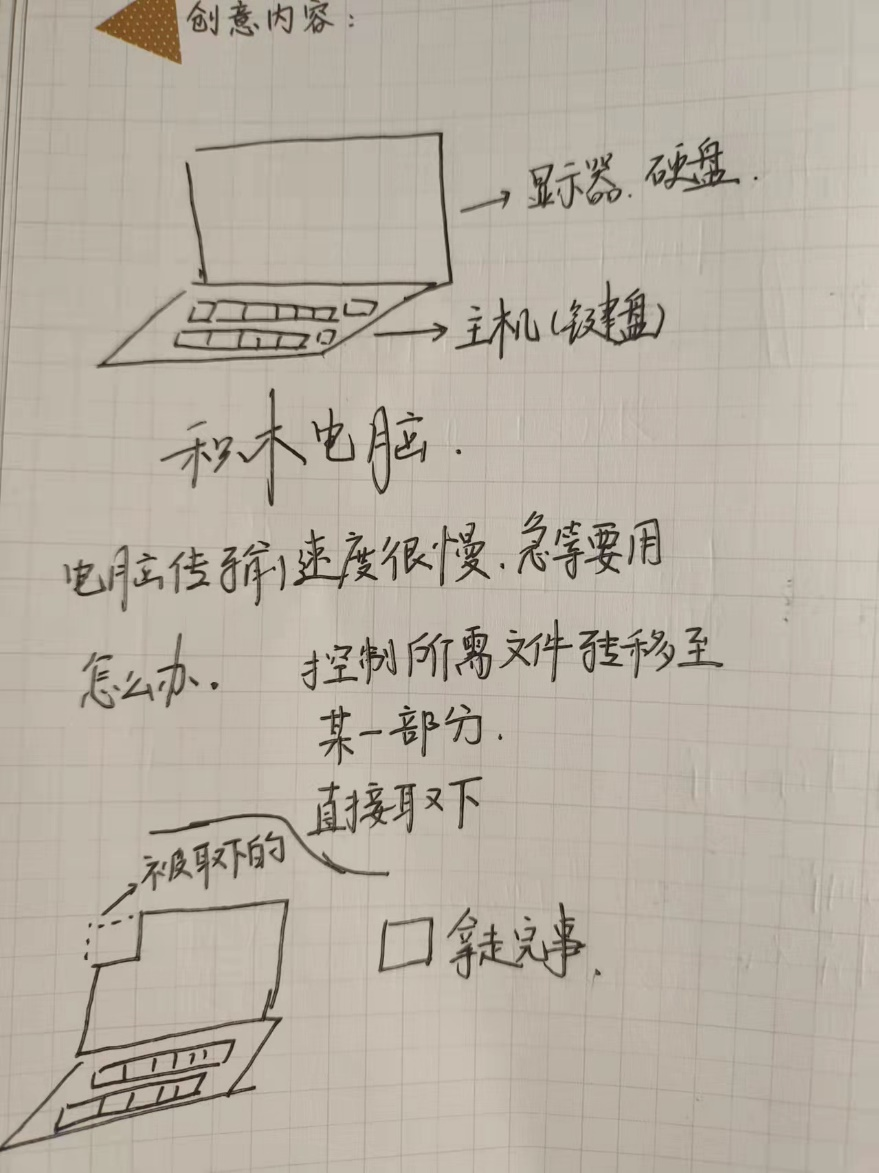 创意内容：
→显示器.硬盘.
→主机(键盘)
积木电脑.
电脑传输速度很慢.急等要用
怎么办.
控制所需文件转移至
某一部分.
直接取下
被取下的
拿走完事.